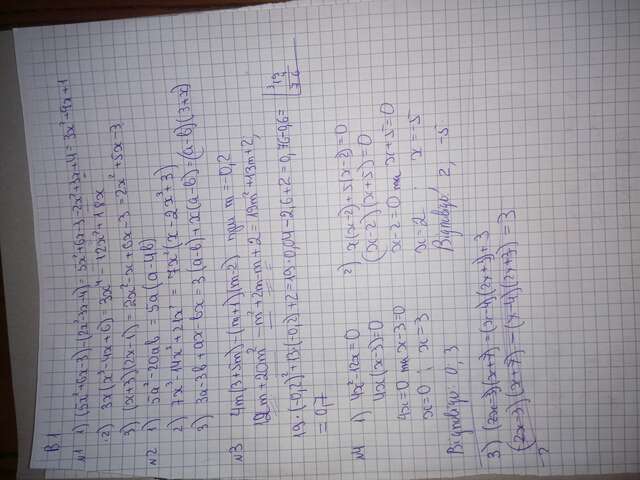 В.1
№1 1) (5x²+6x-3)-(2x²-3x-4)=5x²+6x-3-2x²+3x+4=3x²+9x+1
2) 3x(x³-4x+6)=3x⁴-12x²+18x
3) (x+3)(2x-1)=2x²-x+6x-3=2x²+5x-3
№2 1) 5a²-20ab=5a(a-4b)
2) 7x³-14x⁵+21x²=
3) 3a-3b+ax-bx=3(a-b)+x(a-b)=(a-b)(3+x)
№3 4m(3+5m)-(m+1)(m-2) при m=-0,2
12m-20m²-m²+2m-m+2=19m²+13m+2;
19·(-0,2)²+13(-0,2)+2=19·0,04-2,6+2=0,76-0,6=
=0,7
№4 1) 4x²-12x=0
4x(x-3)=0
4x=0 та x-3=0
x=0; x=3
Відповідь: 0; 3
2) x(x-2)+5(x-2)=0
(x-2)(x+5)=0
x-2=0 та x+5=0
x=2; x=-5
Відповідь: 2; -5
3) (2x-3)(x+7)=(x-4)(2x+3)+3
(2x-3)(x+7)-(x-4)(2x+3)=3